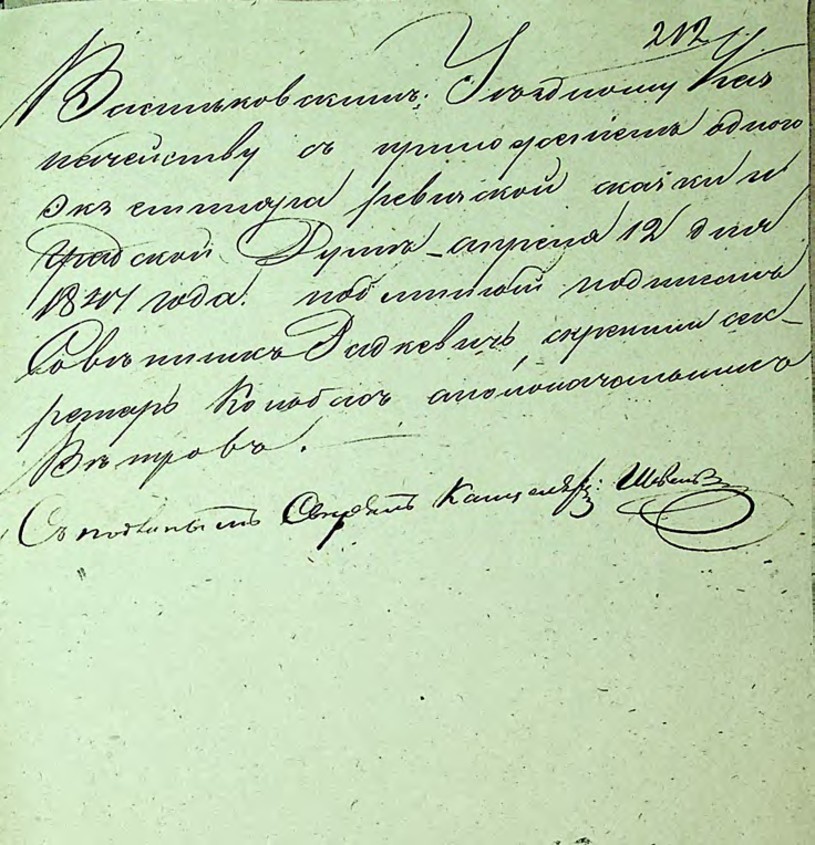 212
Васильковскимъ: Уѣздному Каз
начейству съ приложеніемъ одного
экземпляра ревизской сказки и
Градской Думѣ - апреля 12 дня
1841 года. подлинной подписалъ
Совѣтникъ Радкевичъ, скрепилъ сек-
ретарь Колобовъ столоначальникъ
Вѣтровъ.
Съ подлиннымъ Сверялъ Канцеляр: